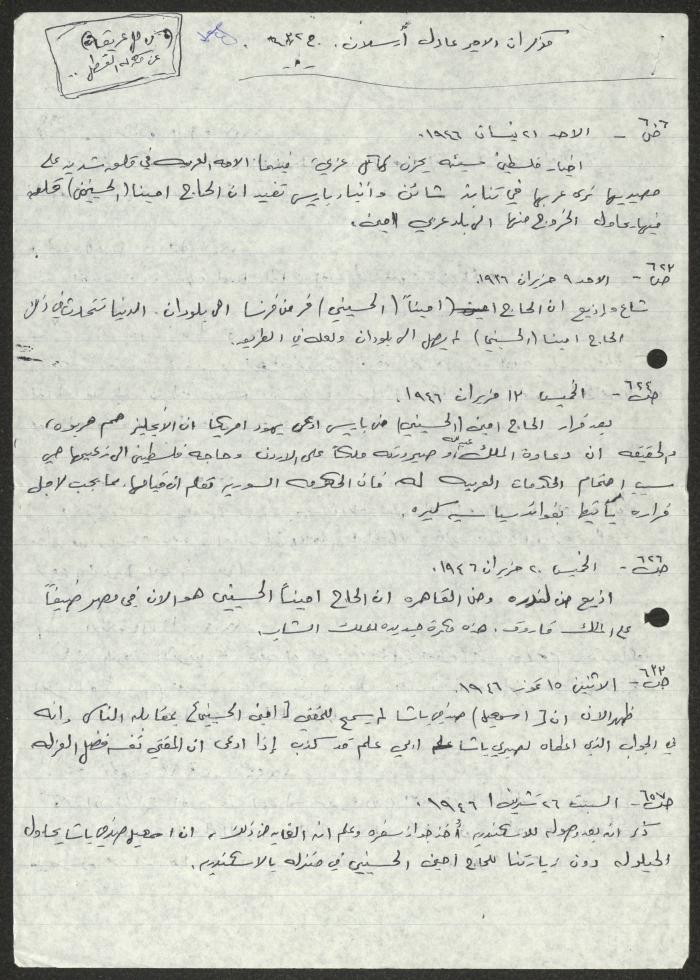 مذكرات الامير عادل أرسلان. ج ٢
ص ٦٠٦ - الاحد ٢١ نيسان ١٩٤٦.
اخبار فلسطين سيئه يحزن لها كل عربي. فبينما الامه العربيه في قلق شديد على
مصيرها نرى عربها في تنابذ شائن وانباء باريس تفيد ان الحاج امينا (الحسيني)
فيها يحاول الخروج منها الى بلد عربي امين.
ص ٦٢٣ - الاحد ٩ حزيران ١٩٤٦.
شاع واذيع ان الحاج امينا (الحسيني) فر من فرنسا الى بلودان. الدنيا تتحدث في ذلك
الحاج امينا (الحسيني) لم يصل الى بلودان ولعله في الطريق.
ص ٦٢٤ - الخميس ١٣ حزيران ١٩٤٦.
بعد فرار الحاج امين (الحسيني) من باريس ادعى يهود امريكا ان الانجليز هم هربوه،
والحقيقه ان دعاوة الملك عبدالله وصيرورته ملكا على الاردن وحاجة فلسطين الى زعيمها هي
سبب اهتمام الحكومات العربيه له فان الحكومه السورية تعلم ان قيامها بما يجب لاجل
فراره يأتيها بفوائد سياسيه كبيره.
ص ٦٢٦ - الخميس ٢٠ حزيران ١٩٤٦.
اذيع من لندره ومن القاهره ان الحاج امينا الحسيني هو الان في مصر ضيفاً
على الملك فاروق. هذه مكرمة جديده للملك الشاب.
ص ٦٣٢ - الاثنين ١٥ تموز ١٩٤٦.
ظهر الان ان [اسمعيل] صدقي باشا لم يسمح للمفتي [امين الحسيني] بمقابلة الناس وانه
في الجواب الذي اعطاه لصبري باشا الى علم قد كذب إذا ادعى ان المفتي نفسه فضل العزله
ص ٦٥٧ - السبت ٢٦ تشرين ١ ١٩٤٦.
ذكر انه بعد وصوله للاسكندريه أُخذ جواز سفره وعلم ان الغايه من ذلك ان اسمعيل صدقي باشا يحاول
الحيلوله دون زيارتنا للحاج امين الحسيني في منزله بالاسكندريه.